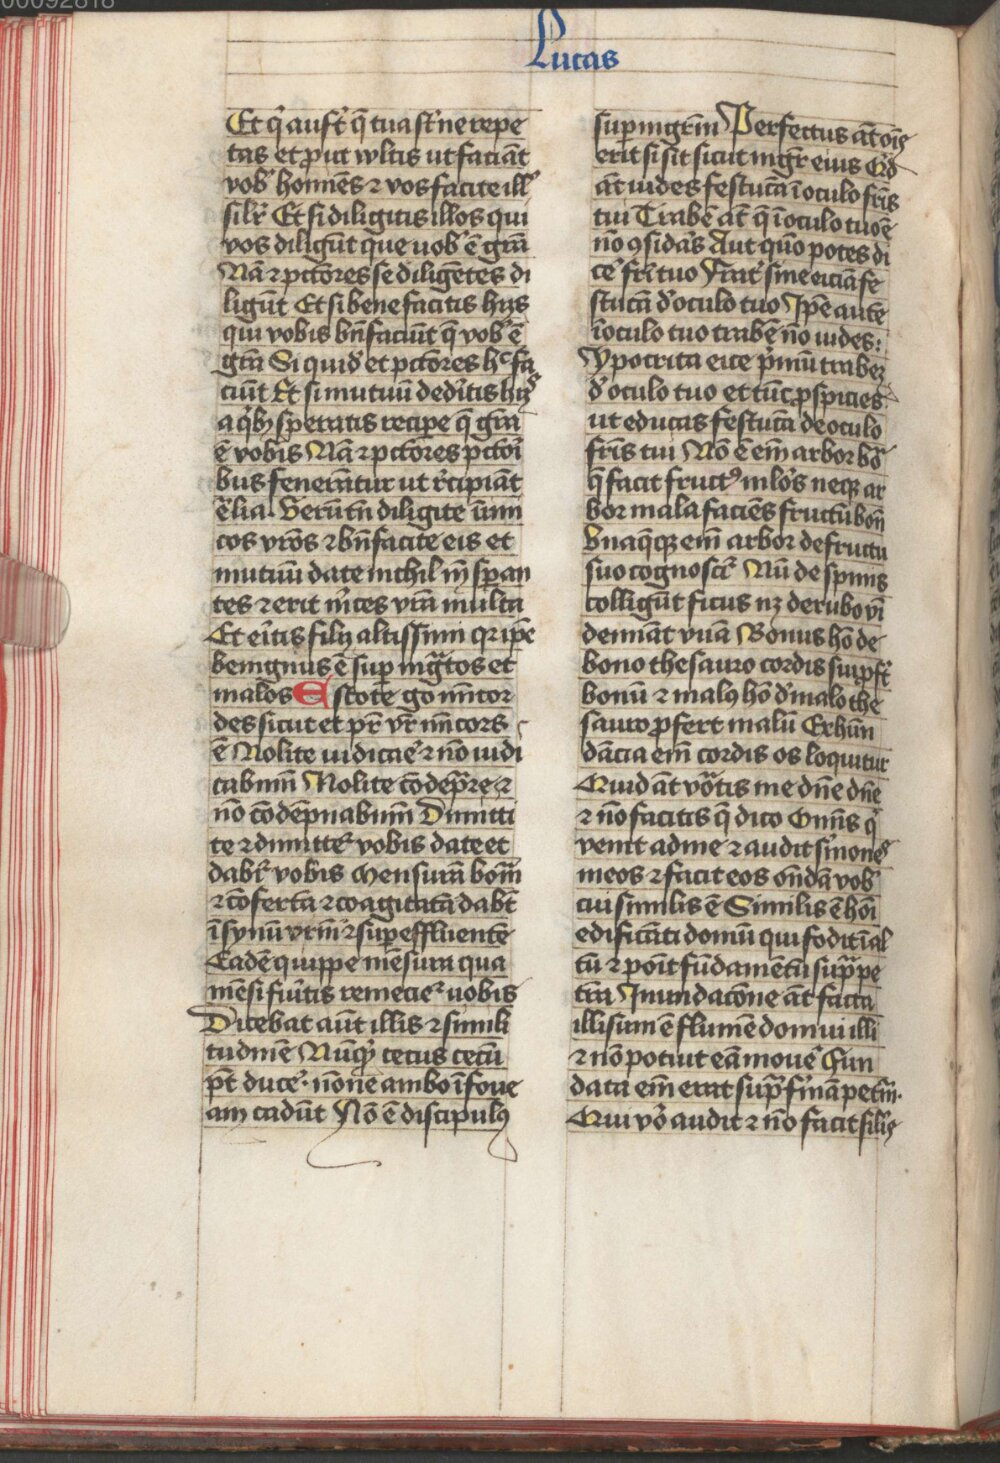 00092818
Lucas
Et q̄ aufť q̄ tua sť ne repe
tas et ꝓut wltis ut faciāt
vob̾ homīes ⁊ vos facite ill̾
silr̾ Et si diligitis illos qui
vos diligūt que uob̾ ē grā
Nā ⁊ pctōres se diligētes di
ligūt Et si bene facitis hijs
qui vobis bn̄faciūt q̄ vob̾ ē
grā Siquid̾ et pctōres hͨ fa
ciūt Et si mutuū ded̾itis hijs
a qͥbꝫ speratis recipe q̄ grā
ē vobis Nā ⁊ pctōres pctōri
bus fenerātur ut r̾cipiāt
eq̄lia Verūtn̄ diligite īimi
cos vr̄os ⁊ bn̄facite eis et
mutuū date nichil īn̄ speran
tes ⁊ erit m̾ces vr̄a multa
Et er̾itis filij altissimi qr ip̄e
benignus ē sup̱ īgͣtos et
malos Estote gͦ mīcor
des sicut et pr̄ vr̄ mīcors
ē Nolite iudicar̾e ⁊ nō iudi
cabīmī Nolite cōdēpnar̾e ⁊
nō cōdēpnabīmī Dimitti
te ⁊ dimittēĩ vobis date et
dabĩ vobis Mensurā bonā
⁊ cōfertā ⁊ coagitatā dabūt
ī synū vr̄m ⁊ sup̱effluentē
Eadē quippe mēsura qua
mēsi fu̾itis remecieĩ uobis
Dicebat aūt illis ⁊ simili
tudinē Nūqͥd cecus cecū
pt̄ duce̾ · nōne ambo ī foue
am cadūt Nō ē discipulꝰ
sup̱ mgr̄m Perfectus āt oīs
erit si sit sicut mgr̄ eius Qͥd
āt uides festucā ī oculo fr̄is
tui Trabē āt q̄ ī oculo tuo ē
nō ꝯsid̾as Aut quō potes di
ce̾ fr̄i tuo Frat̾ sine eiciā fe
stucā d̾ oculo tuo Ip̄e autē
ī oculo tuo trabē nō uides:
Ypocrita eice p̾mū trabeꝫ
d̾ oculo tuo et tūc ꝑspicies
ut educas festucā de oculo
fr̄is tui Nō ē em̄ arbor bōa
q̄ facit fructꝰ mlōs neqꝫ ar
bor mala faciēs fructū bonū
Vnaq̄qꝫ em̄ arbor de fructu
suo cognoscĩ Nū de spinis
colligūt ficus nꝫ de rubo vī
demiāt vuā Bonus hō de
bono thesauro cordis sui ꝓfť
bonū ⁊ malꝰ hō d̾ malo the
sauro ꝓfert malū Ex habūn
dācia em̄ cordis os loquitur
Quid āt vocͣtis me dn̄e dn̄e
⁊ nō facitis q̄ dico Omīs qͥ
venit ad me ⁊ audit s̾mones
meos ⁊ facit eos ondā vob̾
cui similis ē Similis ē hoī
edificāti domū qui fodit ī al
tū ⁊ poīt fūdamētū supͣ pe
trā Inundacōne āt facta
illisum ē flumē domui illi
⁊ nō potuit eā moue̾ Fun
data em̄ erat supͣ f̾mā petrā.
Qui vō audit ⁊ nō facit silis